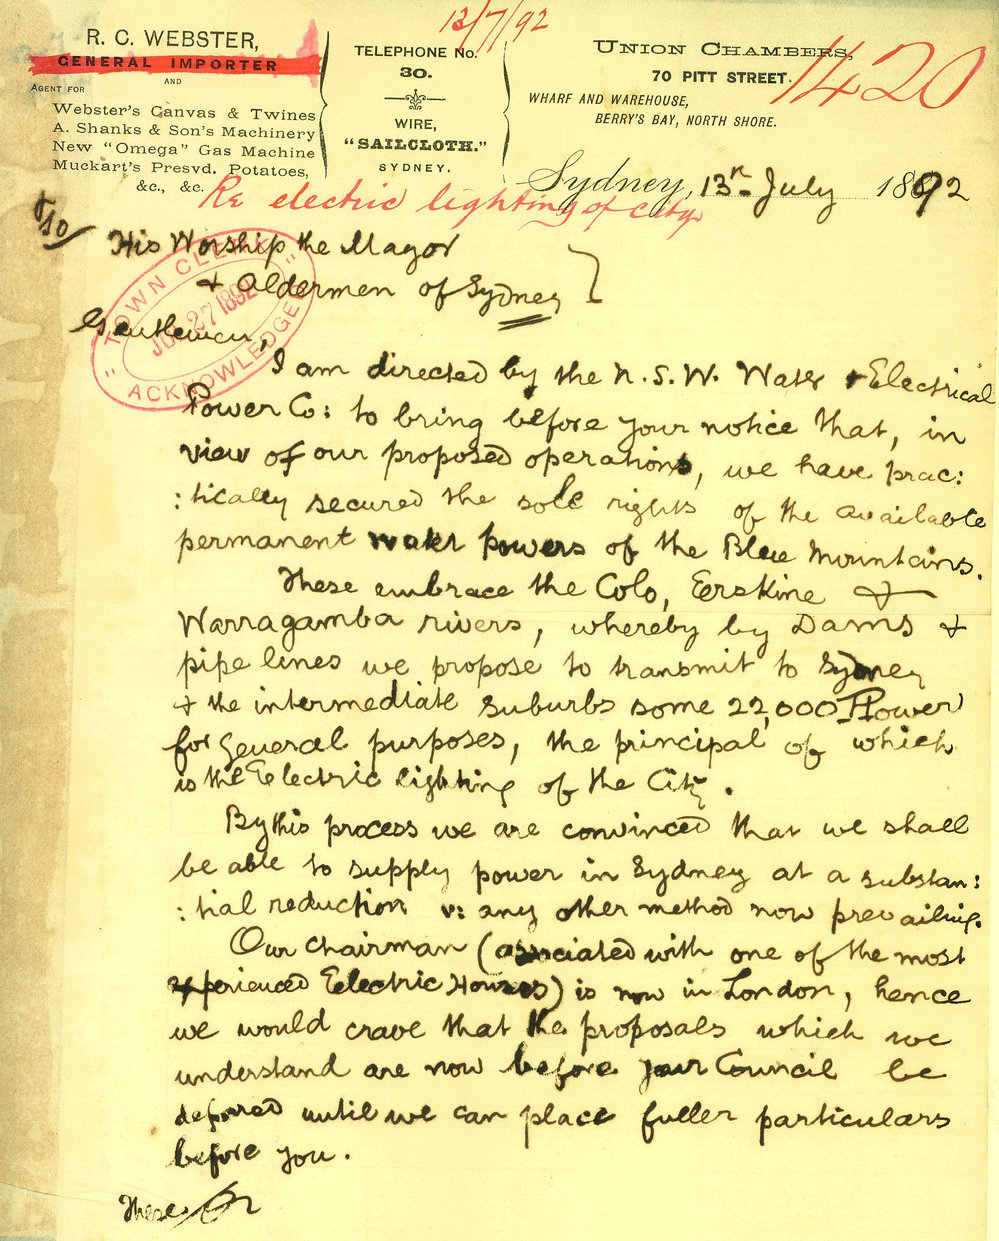 13/7/92
1420
R. C. WEBSTER,
GENERAL IMPORTER
AND
AGENT FOR
Webster's Canvas & Twines
A. Shanks & Son's Machinery
New "Omega" Gas Machine
Muckart's Presvd. Potatoes,
&c., &c.
TELEPHONE No.
30.
WIRE,
"SAILCLOTH."
SYDNEY.
UNION CHAMBERS,
70 PITT STREET.
WHARF AND WAREHOUSE,
BERRY'S BAY, NORTH SHORE.
Sydney, 13th July 1892
Re electric lighting of City
TOWN CLERK
JUL 27 1892
ACKNOWLEDGED
His Worship the Mayor
& Aldermen of Sydney
Gentlemen,
I am directed by the N.S.W. Water & Electrical
Power Co: to bring before your notice that, in
view of our proposed operations, we have prac:
:tically secured the sole rights of the available
permanent water powers of the Blue Mountains.
These embrace the Colo, Erskine &
Warragamba rivers, whereby by Dams &
pipe lines we propose to transmit to Sydney
& the intermediate suburbs some 22,000 HPower
for general purposes, the principal of which
is the Electric lighting of the City.
By this process we are convinced that we shall
be able to supply power in Sydney at a substan:
:tial reduction v: any other method now prevailing.
Our Chairman (associated with one of the most
experienced Electric Houses) is now in London, hence
we would crave that the proposals which we
understand are now before your Council be
deferred until we can place fuller particulars
before you.
These